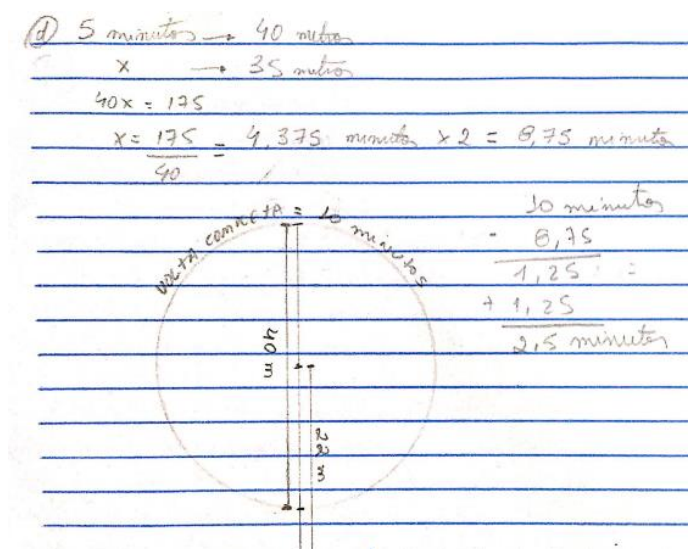 d 5 minutos → 40 metros
x → 35 metros
40x = 175
x = 175/40 = 4,375 minutos x 2 = 8,75 minutos
VOLTA COMPLETA = 10 minutos
10 minutos
- 8,75
1,25 =
+ 1,25
2,5 minutos
40 m
22 m